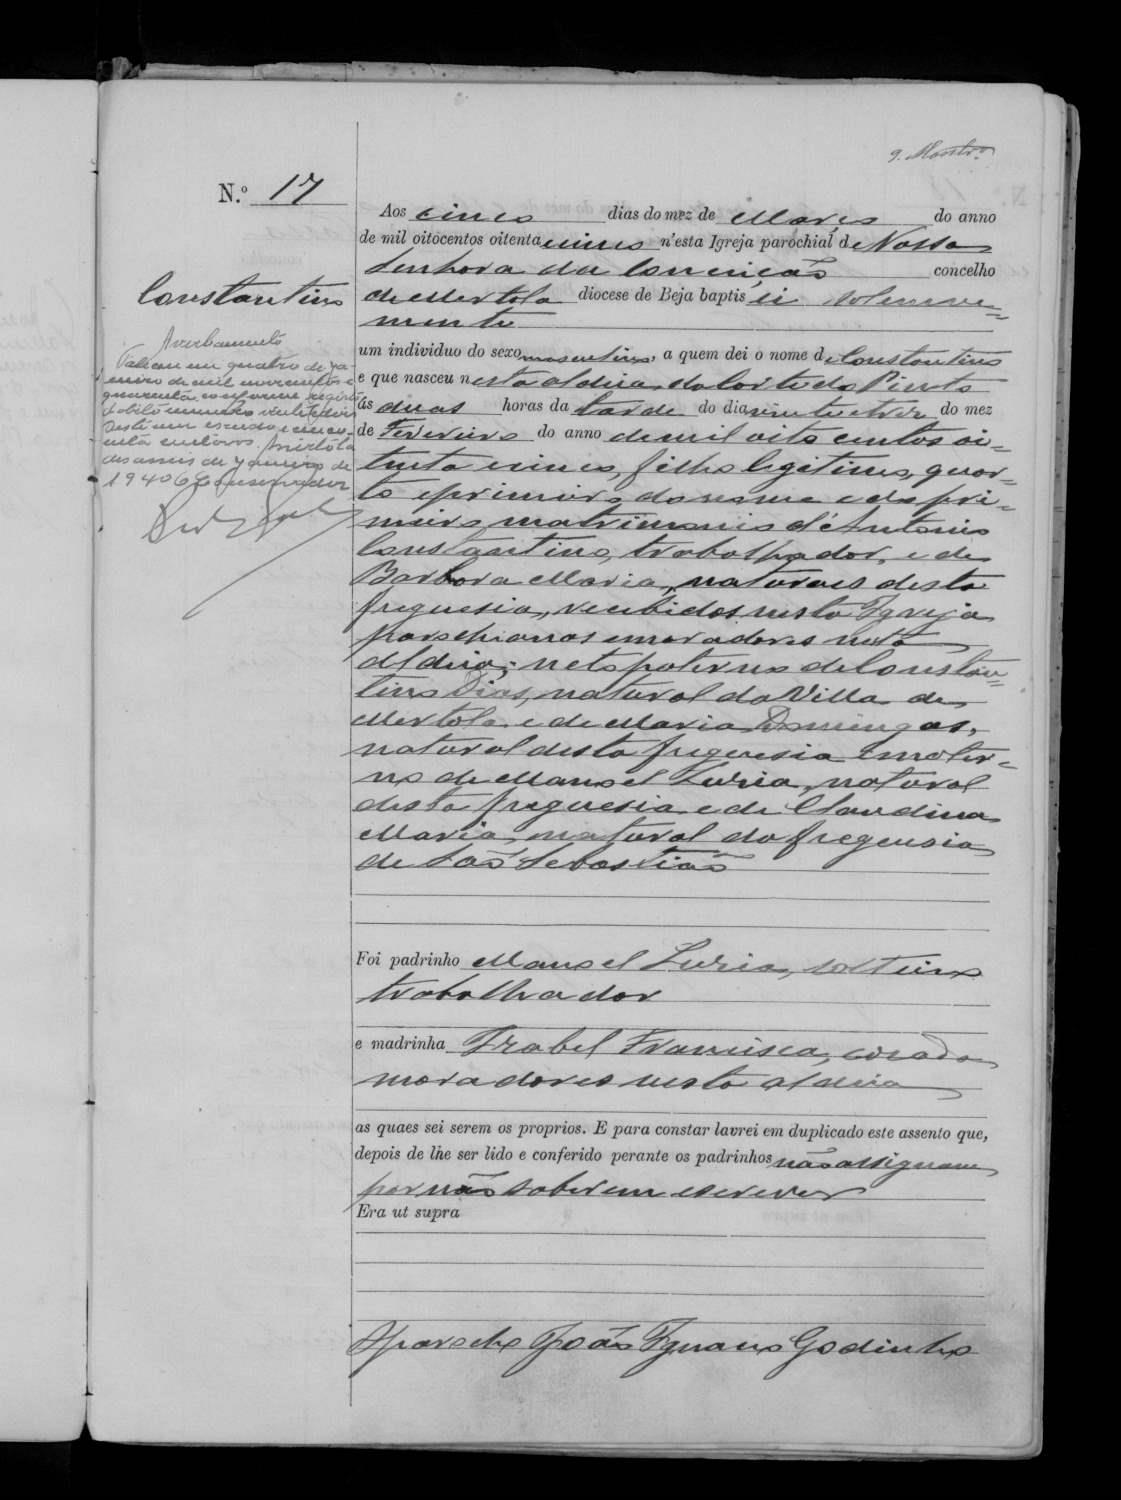 N.º 17
Constantino
Averbamento
Faleceu em quatro de ja-
neiro de mil novecentos e
quarenta conforme registo
d'obito numero vinte dois
Deste um escudo e cincoe
nta centavos. Mertola
dezaseis de Janeiro de
1940 O Conservador
Aos cinco dias do mez de Março do anno
de mil oitocentos oitenta e cinco n'esta Igreja parochial de Nossa
Senhora da Conceição concelho
de Mertola diocese de Beja baptisei solemne=
mente
um individuo do sexo masculino, a quem dei o nome de Constantino
e que nasceu nesta aldeia da Corte do Pinto
ás duas horas da tarde do dia vinte e tres do mez
de Fevereiro do anno de mil oito centos oi=
tenta e cinco, filho legitimo, quar-
to e primeiro do nome e do pri=
meiro matrimonio d'Antonio
Constantino, trabalhador, e de
Barbora Maria, naturaes desta
freguesia, recebidos nesta Igreja
parochianos e moradores nesta
aldeia; neto paterno de Constan=
tino Dias, natural da Villa de
Mertola e de Maria Domingas,
natural desta freguesia e mater=
no de Manoel Luria, natural
desta freguesia e de Claudina
Maria, natural da freguesia
de São Sebastião
Foi padrinho Manoel Luria, solteiro
trabalhador
e madrinha Izabel Francisca, casada
moradores nesta aldeia
as quaes sei serem os proprios. E para constar lavrei em duplicado este assento que,
depois de lhe ser lido e conferido perante os padrinhos não assignam
por não saberem escrever
Era ut supra
O Parocho João Ignacio Godinho